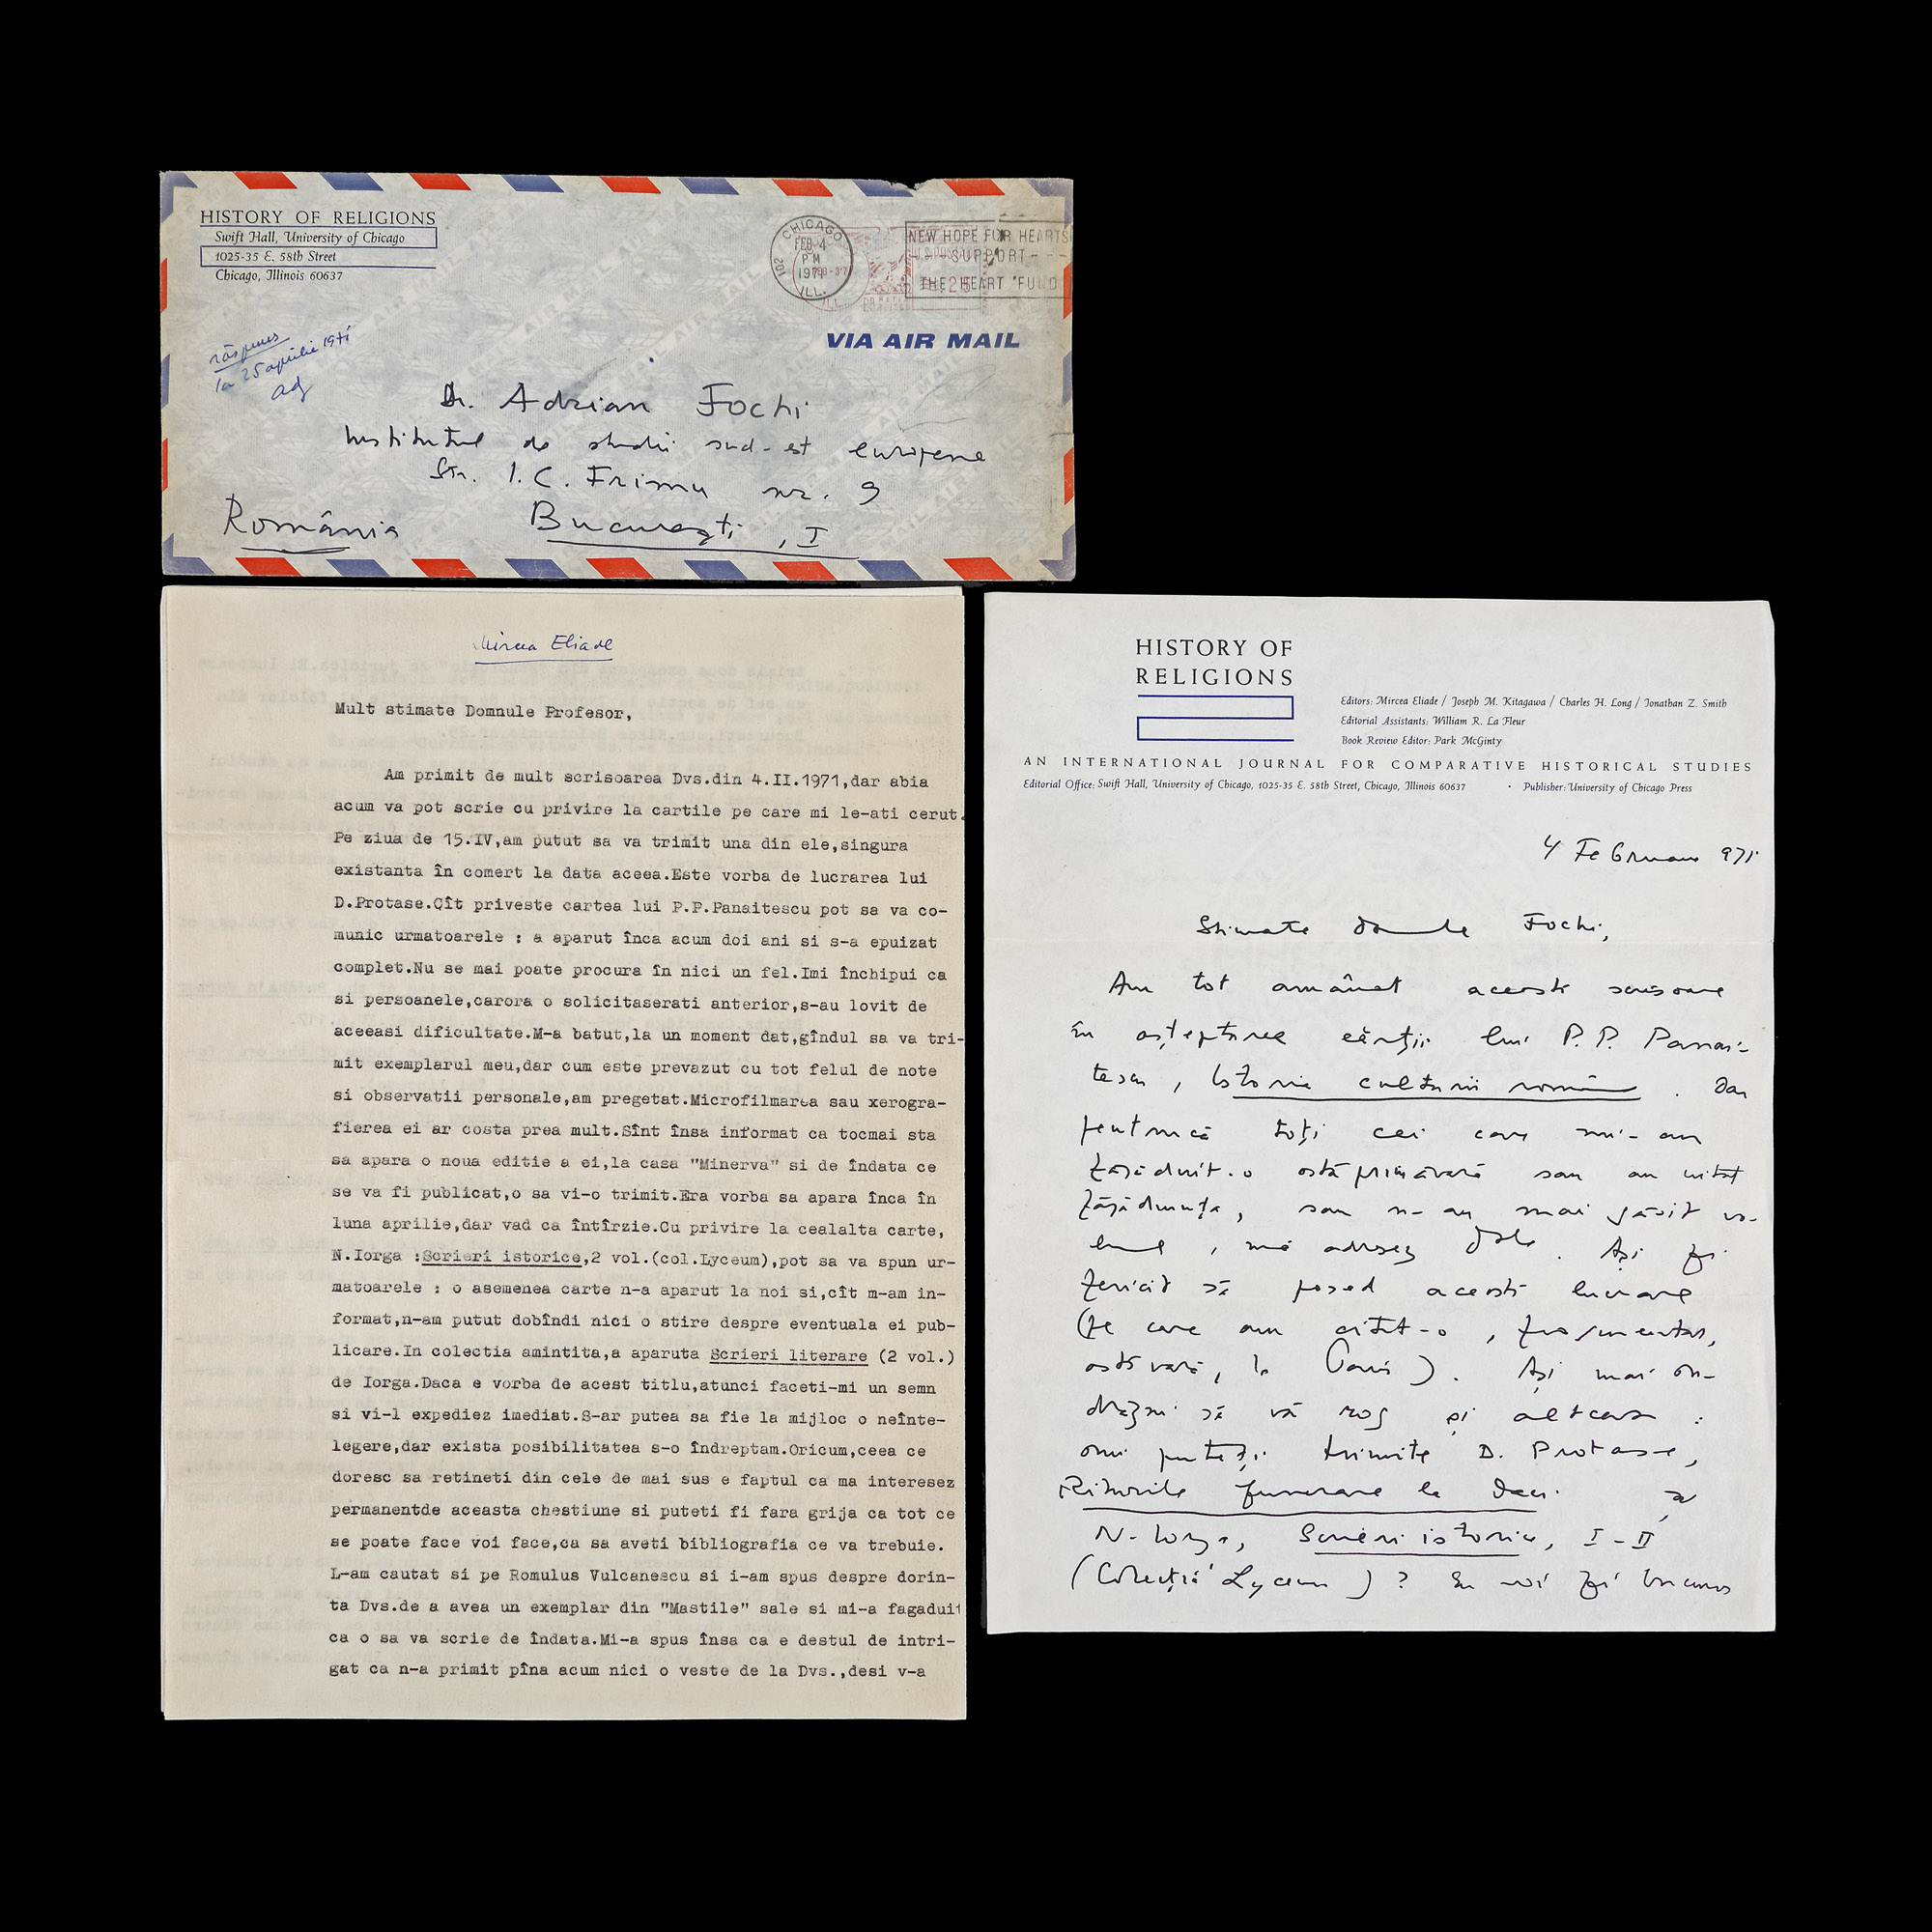 HISTORY OF RELIGIONS
Swift Hall, University of Chicago
1025-35 E. 58th Street
Chicago, Illinois 60637
CHICAGO
FEB-4
PM
1971
ILL.
NEW HOPE FOR HEARTS
SUPPORT
THE HEART FUND
VIA AIR MAIL
răspuns
la 25 aprilie 1971
Dr. Adrian Fochi
Institutul de studii sud-est europene
Str. I.C. Frimu nr. 9
România București, I
Mircea Eliade
Mult stimate Domnule Profesor,
Am primit de mult scrisoarea Dvs.din 4.II.1971,dar abia
acum va pot scrie cu privire la cartile pe care mi le-ati cerut.
Pe ziua de 15.IV,am putut sa va trimit una din ele,singura
existanta în comert la data aceea.Este vorba de lucrarea lui
D.Protase.Cît priveste cartea lui P.P.Panaitescu pot sa va co-
munic urmatoarele : a aparut înca acum doi ani si s-a epuizat
complet.Nu se mai poate procura în nici un fel.Imi închipui ca
si persoanele,carora o solicitaserati anterior,s-au lovit de
aceeasi dificultate.M-a batut,la un moment dat,gîndul sa va tri-
mit exemplarul meu,dar cum este prevazut cu tot felul de note
si observatii personale,am pregetat.Microfilmarea sau xerogra-
fierea ei ar costa prea mult.Sînt însa informat ca tocmai sta
sa apara o noua editie a ei,la casa "Minerva" si de îndata ce
se va fi publicat,o sa vi-o trimit.Era vorba sa apara înca în
luna aprilie,dar vad ca întîrzie.Cu privire la cealalta carte,
N.Iorga :Scrieri istorice,2 vol.(col.Lyceum),pot sa va spun ur-
matoarele : o asemenea carte n-a aparut la noi si,cît m-am in-
format,n-am putut dobîndi nici o stire despre eventuala ei pub-
licare.In colectia amintita,a aparuta Scrieri literare (2 vol.)
de Iorga.Daca e vorba de acest titlu,atunci faceti-mi un semn
si vi-l expediez imediat.S-ar putea sa fie la mijloc o neînte-
legere,dar exista posibilitatea s-o îndreptam.Oricum,ceea ce
doresc sa retineti din cele de mai sus e faptul ca ma interesez
permanentde aceasta chestiune si puteti fi fara grija ca tot ce
se poate face voi face,ca sa aveti bibliografia ce va trebuie.
L-am cautat si pe Romulus Vulcanescu si i-am spus despre dorin-
ta Dvs.de a avea un exemplar din "Mastile" sale si mi-a fagaduit
ca o sa va scrie de îndata.Mi-a spus însa ca e destul de intri-
gat ca n-a primit pîna acum nici o veste de la Dvs.,desi v-a
HISTORY OF
RELIGIONS
Editors: Mircea Eliade / Joseph M. Kitagawa / Charles H. Long / Jonathan Z. Smith
Editorial Assistants: William R. La Fleur
Book Review Editor: Park McGinty
AN INTERNATIONAL JOURNAL FOR COMPARATIVE HISTORICAL STUDIES
Editorial Office: Swift Hall, University of Chicago, 1025-35 E. 58th Street, Chicago, Illinois 60637 • Publisher: University of Chicago Press
4 Februarie 971
Stimate domnule Fochi,
Am tot amânat această scrisoare
în așteptarea cărții lui P.P. Panai-
tescu, Istoria culturii române. Dar
pentrucă toți cei care mi-au
făgăduit-o astă primăvară sau au uitat
făgăduința, sau n-au mai găsit vo-
lumul, mă adresez Dtale. Aș fi
fericit să posed această lucrare
(pe care am citit-o, fragmentar,
astă vară, la Paris). Aș mai în-
drăzni să vă rog și altceva :
îmi puteți trimite D. Protase,
Riturile funerare la Daci și
N. Iorga, Scrieri istorice, I-II
(Colecția Lyceum)? Eu voi fi bucuros